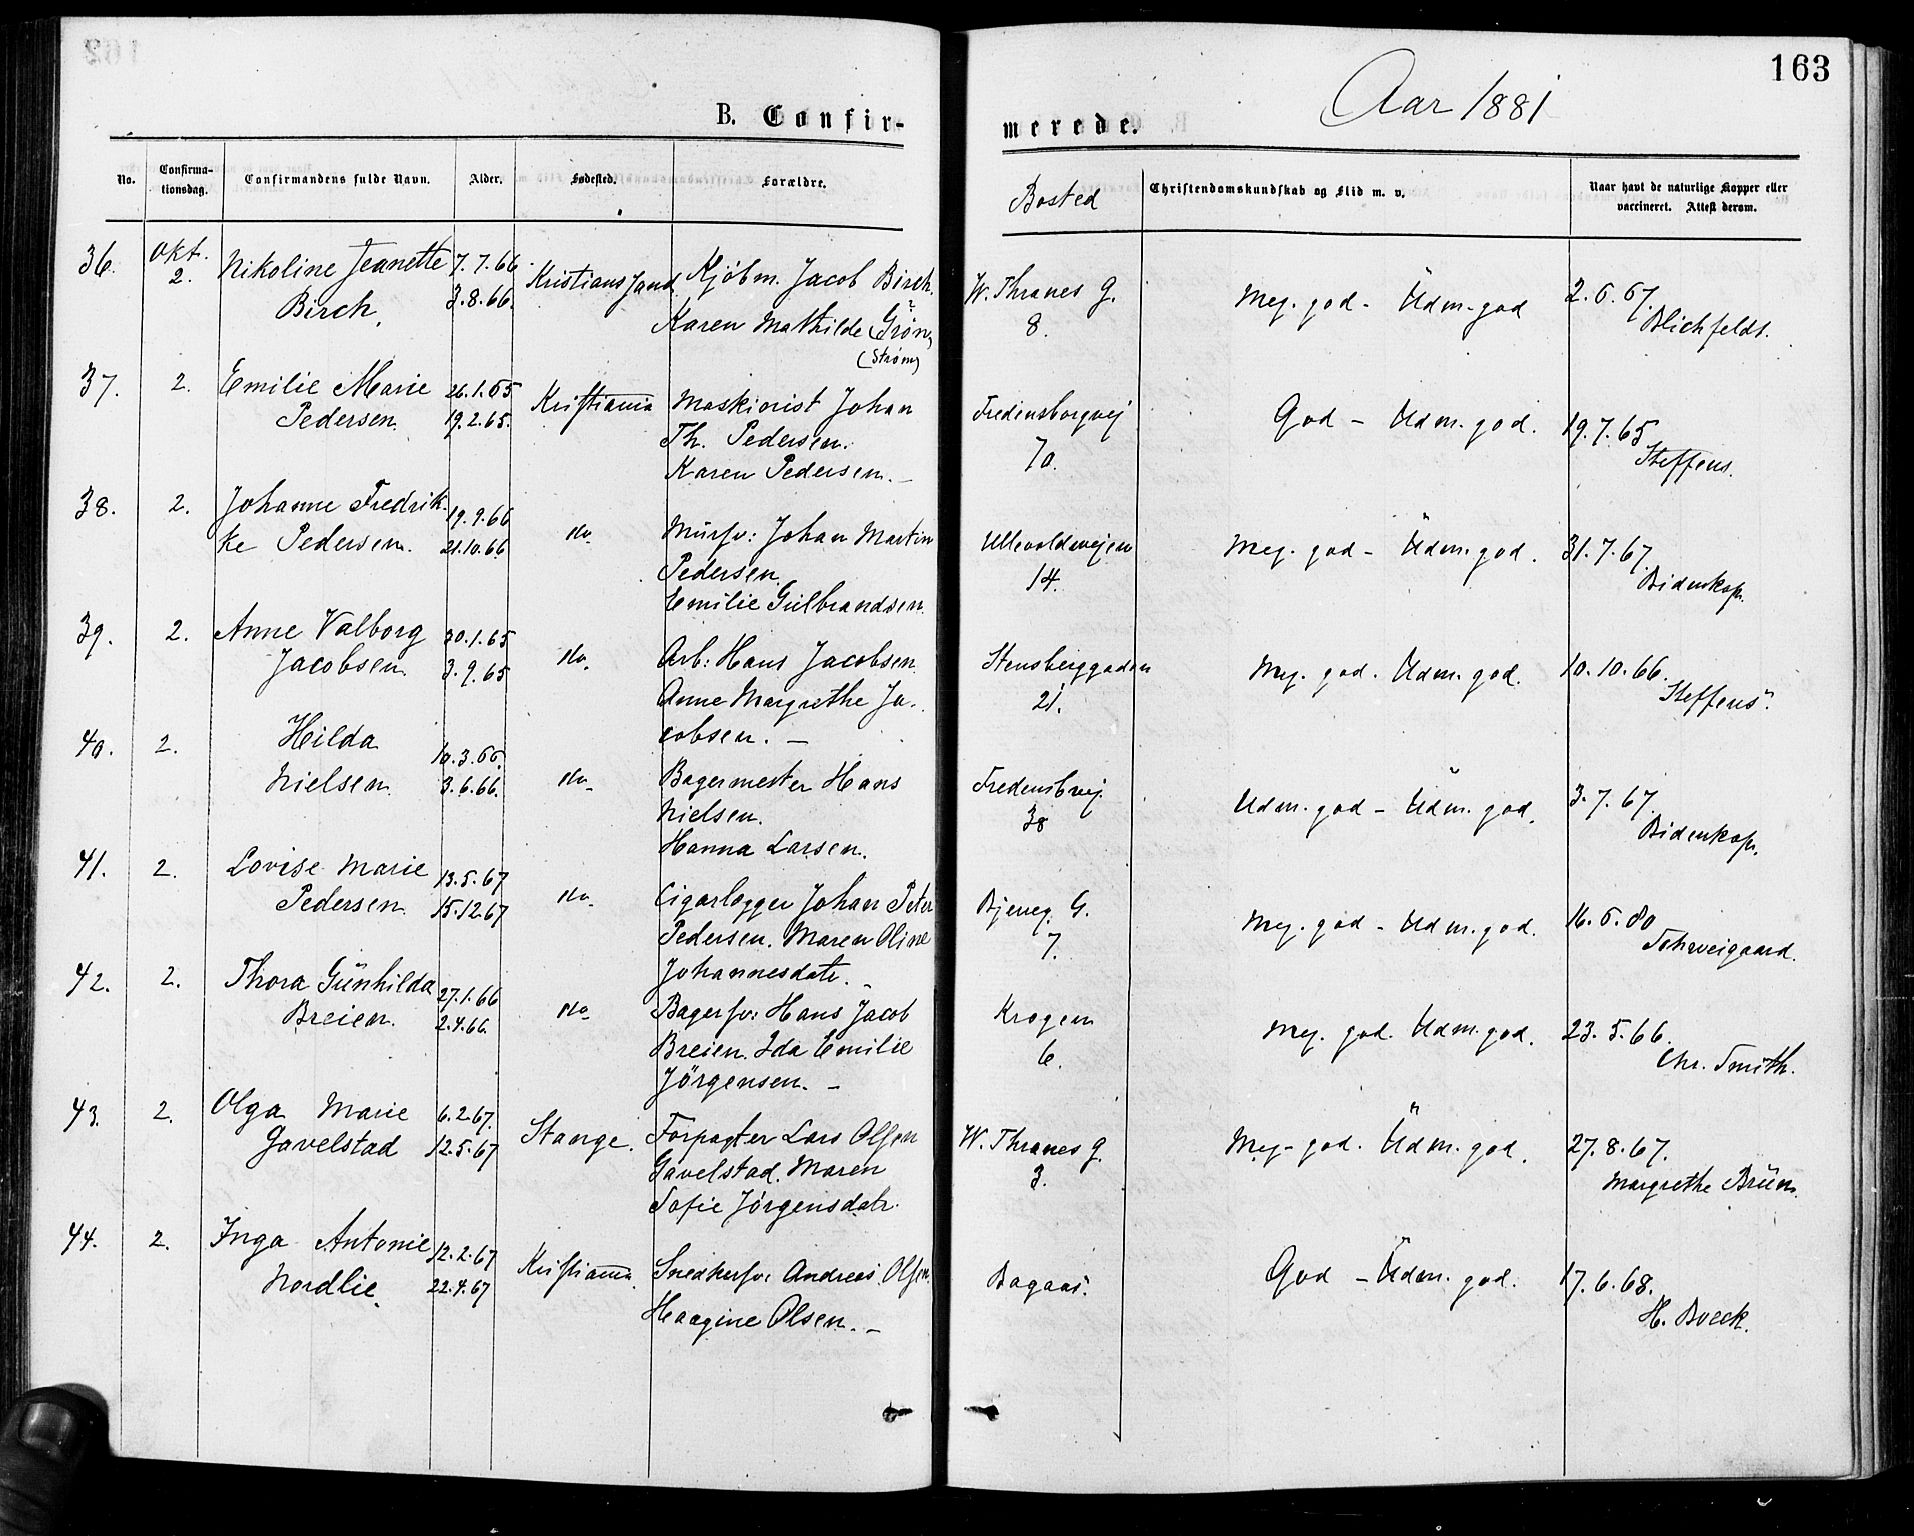 163
Aar 1881
B. Confir-
merede.
No.
Confirma-
tionsdag.
Confirmandens fulde Navn.
Alder.
Fødested.
Forældre.
Bosted
Christendomskundskab og Flid m. v.
Naar havt de naturlige Kopper eller
vaccineret. Attest derom.
36. Okt. Nikoline Jeanette 7.7.66 Kristianssand Kjøbm. Jacob Birch. W. Thranes G. Meg. god - Udm. god 2.6.67.
2. Birch, 3.8.66. Karen Mathilde (Grøn) 8. Blichfeldt.
(Strøm)
37. 2. Emilie Marie 26.1.65 Kristiania Maskinist Johan Fredensborgvej God - Udm. god. 19.7.65
Pedersen. 19.2.65. Th. Pedersen. 70. Steffens.
Karen Pedersen. -
38. 2. Johanne Fredrik- 19.9.66 do. Mursv: Johan Martin Ullevoldsvejen Meg. god - Udm. god. 31.7.67.
ke Pedersen. 21.10.66 Pedersen. 14. Bidenkap.
Emilie Gulbrandsen.
39. 2. Anne Valborg 30.1.65 do. Arb: Hans Jacobsen. Stensberggaden Meg. god. Udm. god. 10.10.66.
Jacobsen. 3.9.65 Anne Margrethe Ja- 21. Steffens.
cobsen. -
40. 2. Hilda 10.3.66. do. Bagermester Hans Fredensbvej. Udm. god - Udm. god. 3.7.67.
Nielsen. 3.6.66. Nielsen. 38 Bidenkap.
Hanna Larsen.
41. 2. Lovise Marie 13.5.67 do. Cigarlægger Johan Peter Bjerreg. G. Meg. god - Udm. god. 16.6.80
Pedersen. 15.12.67 Pedersen. Maren Oline 7. Schweigaard.
Johannesdatr. -
42. 2. Thora Gunhilda 27.1.66 do. Bagersv: Hans Jacob Krogen Meg. god. Udm. god. 23.5.66.
Breien. 2.4.66. Breien. Ida Emilie 6. Chr. Smith.
Jørgensen. -
43. 2. Olga Marie 6.2.67. Stange. Forpagter Lars Olsen W. Thranes G. Meg. god. Udm. god. 27.8.67.
Gavelstad 12.5.67 Gavelstad. Maren 3. Margrethe Bruun.
Sofie Jørgensdatr.
44. 2. Inga Antonie 12.2.67 Kristiania. Snedkersv: Andreas Olsen. Bagaas. God - Udm. god. 17.6.68.
Nordlie. 22.4.67 Haagine Olsen. - H. Boeck.